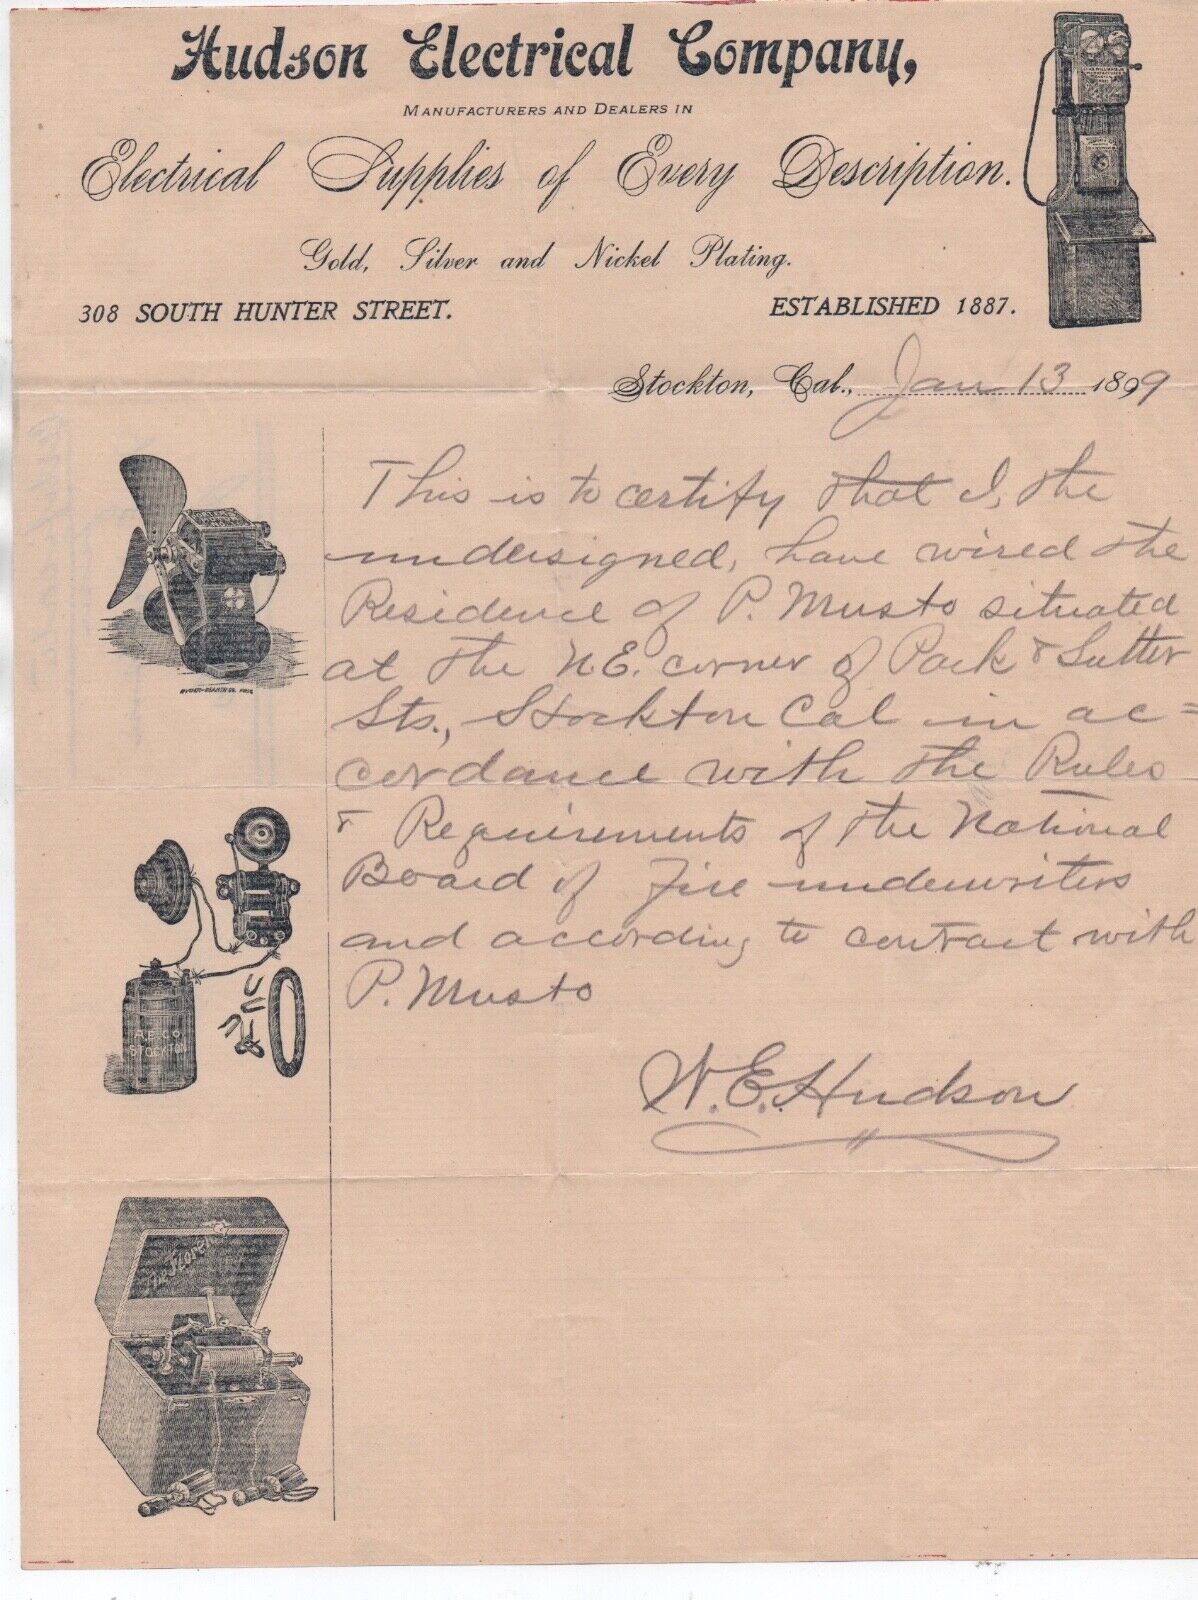 Hudson Electrical Company,
MANUFACTURERS AND DEALERS IN
Electrical Supplies of Every Description.
Gold, Silver and Nickel Plating.
308 SOUTH HUNTER STREET. ESTABLISHED 1887.
Stockton, Cal., Jan 13 1899
This is to certify that I, the
undersigned, have wired the
Residence of P. Musto situated
at the N.E. corner of Park & Sutter
Sts., Stockton Cal in ac=
cordance with the Rules
& Requirements of the National
Board of Fire underwriters
and according to contract with
P. Musto
W. E. Hudson
A.E.CO.
STOCKTON